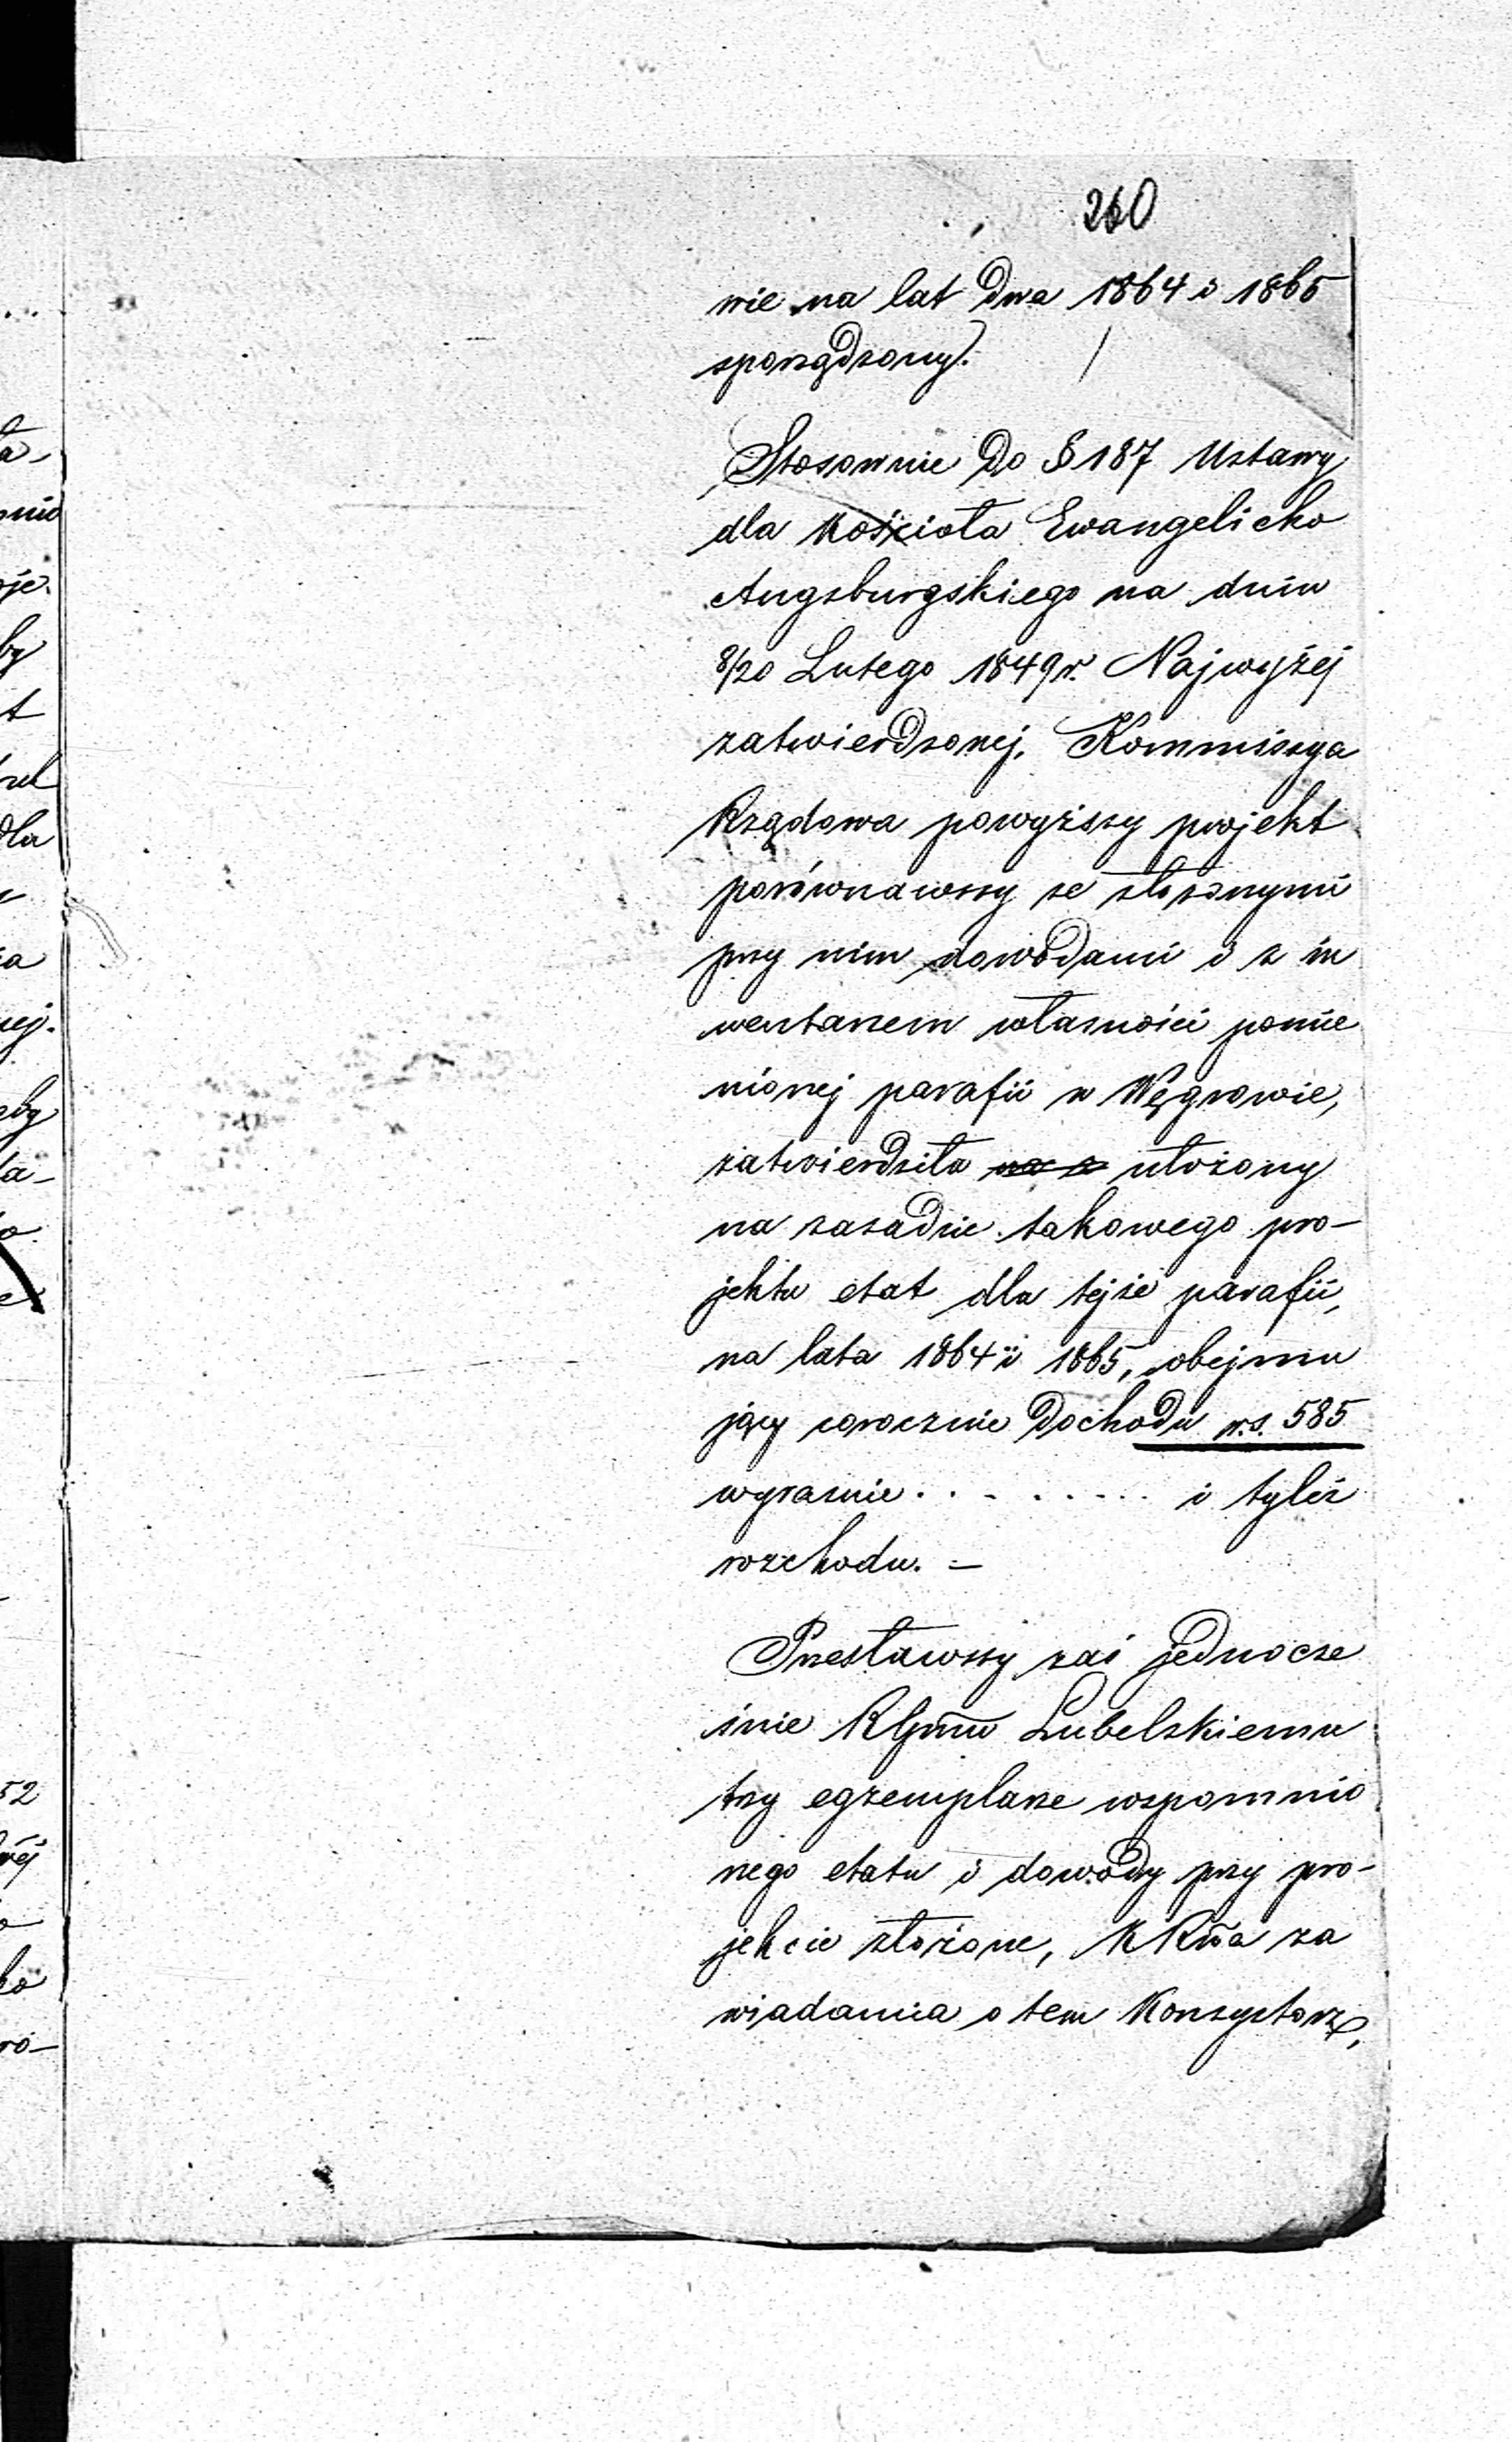 260
wie na lat dwa 1864 i 1865
sporządzony).
Stosownie do § 187 Ustawy
dla Kościoła Ewangelicko
Augsburgskiego na dniu
8/20 Lutego 1849 r. Najwyżej
zatwierdzonej, Kommissya
Rządowa powyższy projekt
porównawszy ze złożonymi
przy nim dowodami i z in
wentarzem własności pomie
nionej parafii w Węgrowie,
zatwierdziła ułożony
na zasadzie takowego pro-
jektu etat dla tejże parafii,
na lata 1864 i 1865, obejmu
jący corocznie dochodu r.s. 585
wyraźnie . . . . . . . . . i tyleż
rozchodu. –
Przesławszy zaś jednocze
śnie RGmu Lubelskiemu
trzy egzemplarze wspomnio
nego etatu i dowody przy pro-
jekcie złożone, KRwa za
wiadamia o tem Konsystorz,